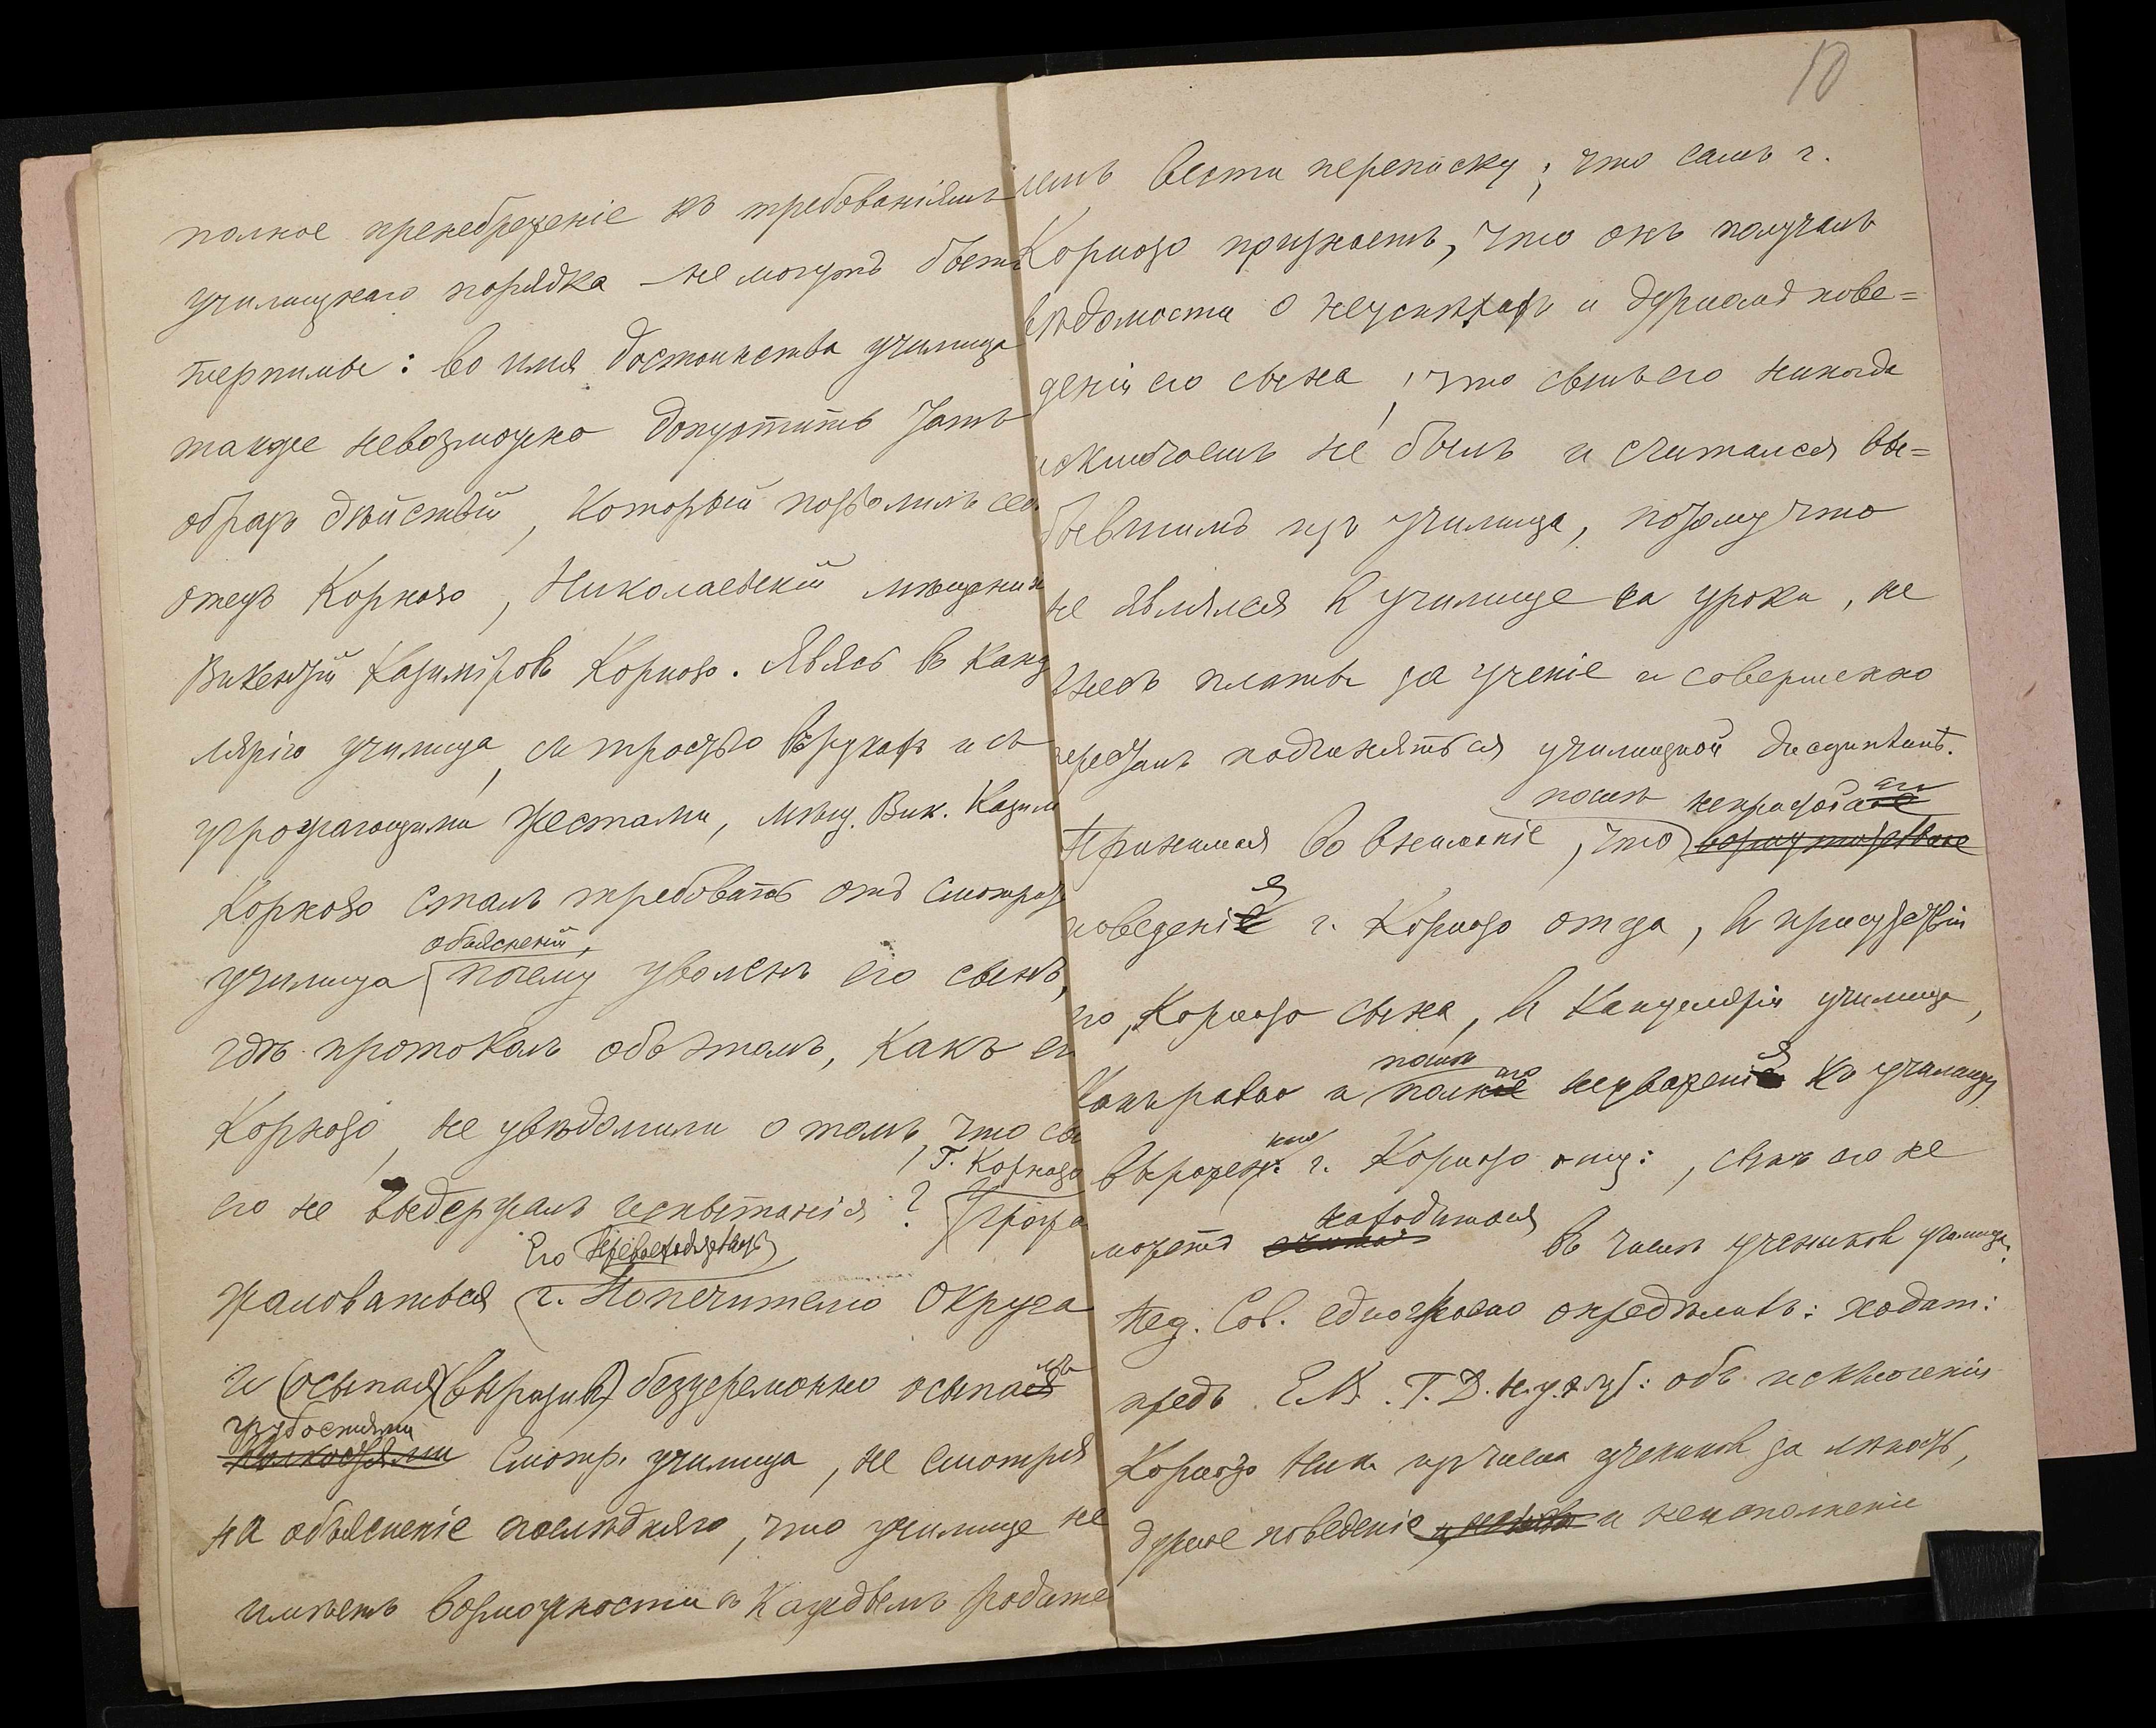 полное пренебреженіе къ требованіямъ
училищнаго порядка не могутъ быть
терпимы: во имя достоинства училища
также невозможно допустить тотъ
образъ дѣйствій, который позволилъ себ
отецъ Корнозо, Николаевскій мѣщанин
Викентій Казиміровъ Корнозо. Явясь въ канц
лярію училища, съ тростью въ рукахъ и съ
угрожающими жестами, мѣщ. Вик. Казим
Корнозо сталъ требовать отъ смотрит
объясненій,
училища почему уволенъ его сынъ,
гдѣ протоколъ объ этомъ, какъ ег
Корнозо, не увѣдомили о томъ, что сы
его не выдержалъ испытанія? Г. Корнозо
Его Превосходительству
жаловаться г. Попечителю Округа
и (осыпая) (выразивъ) безцеремонно осыпая
грубостями
Смотр. училища, не смотря
на объясненіе послѣдняго, что училище не
имѣетъ возможности съ каждымъ родите
10
лемъ вести переписку; что самъ г.
Корнозо признаетъ, что онъ получалъ
вѣдомости о неуспѣхахъ и дурномъ пове=
деніи его сына, что сынъ его никогда
исключаемъ не былъ и считался вы=
бывшимъ изъ училища, потому что
не являлся въ училище на уроки, не
внесъ платы за ученіе и совершенно
пересталъ подчиняться училищной дисциплинѣ.
послѣ
Принимая во вниманіе, что
поведенія г. Корнозо отца, въ присутствіи
его, Корнозо сына, въ Канцеляріи училища,
послѣ
и неуваженія къ училищу
выражен. г. Корнозо отц:, сынъ его не
находиться
можетъ въ числѣ учениковъ училища,
Пед. Сов. единогласно опредѣлилъ: ходат:
предъ Г. Д. объ исключеніи
Корнозо Ник. изъ числа учениковъ за лѣность,
дурное поведеніе и неисполненіе